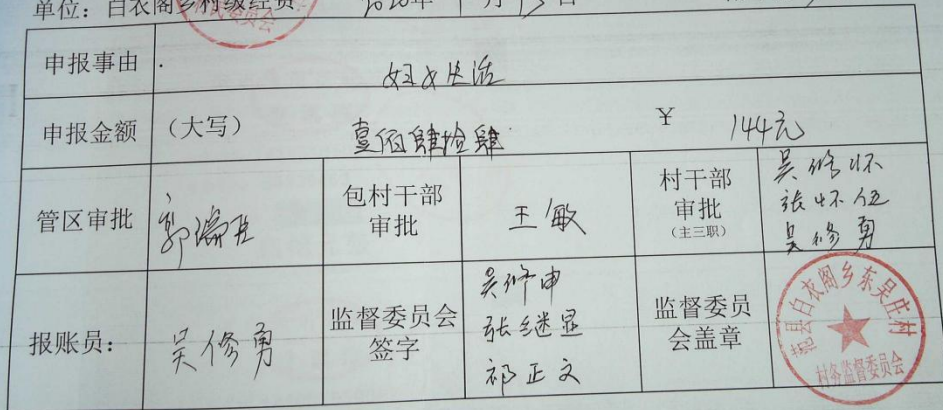 单位：白衣阁乡村级经费 2020年1月13日
申报事由 妇女生活
申报金额 （大写） 壹佰肆拾肆 ¥ 144元
管区审批 包村干部审批 王敏 村干部审批（主三职） 吴修怀
张怀伍
吴修勇
报账员： 吴修勇 监督委员会签字 吴修申
张继显
祁正文
监督委员会盖章
范县白衣阁乡东吴庄村
村务监督委员会